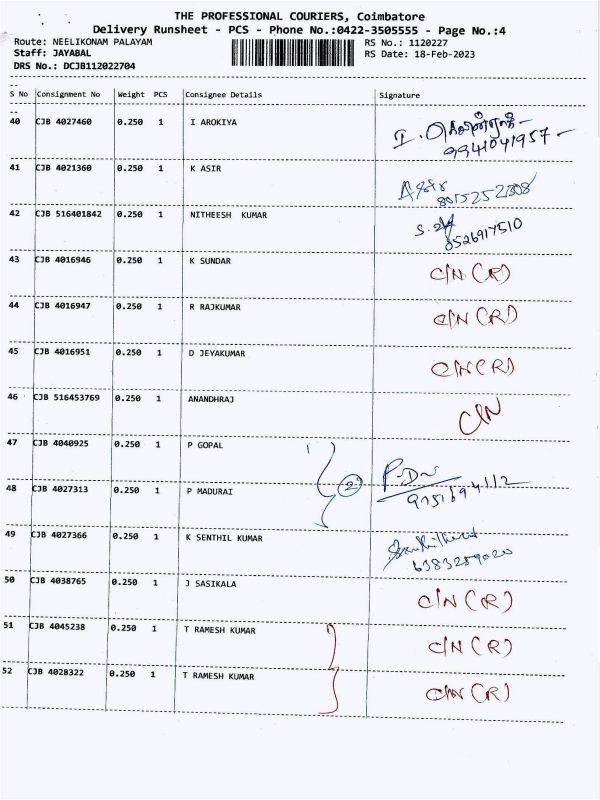 THE PROFESSIONAL COURIERS, Coimbatore
Delivery Runsheet - PCS - Phone No.:0422-3505555 - Page No.:4
Route: NEELIKONAM PALAYAM RS No.: 1120227
Staff: JAYABAL RS Date: 18-Feb-2023
DRS No.: DCJB112022704
S No Consignment No Weight PCS Consignee Details Signature
40 CJB 4027460 0.250 1 I AROKIYA I.
9941041957
41 CJB 4021360 0.250 1 K ASIR Asir
8015252308
42 CJB 516401842 0.250 1 NITHEESH KUMAR
8526917510
43 CJB 4016946 0.250 1 K SUNDAR C/N (R)
44 CJB 4016947 0.250 1 R RAJKUMAR C/N (R)
45 CJB 4016951 0.250 1 D JEYAKUMAR C/N (R)
46 CJB 516453769 0.250 1 ANANDHRAJ C/N
47 CJB 4040925 0.250 1 P GOPAL
2
48 CJB 4027313 0.250 1 P MADURAI
49 CJB 4027366 0.250 1 K SENTHIL KUMAR
6383289020
50 CJB 4038765 0.250 1 J SASIKALA C/N (R)
51 CJB 4045238 0.250 1 T RAMESH KUMAR C/N (R)
52 CJB 4028322 0.250 1 T RAMESH KUMAR C/N (R)